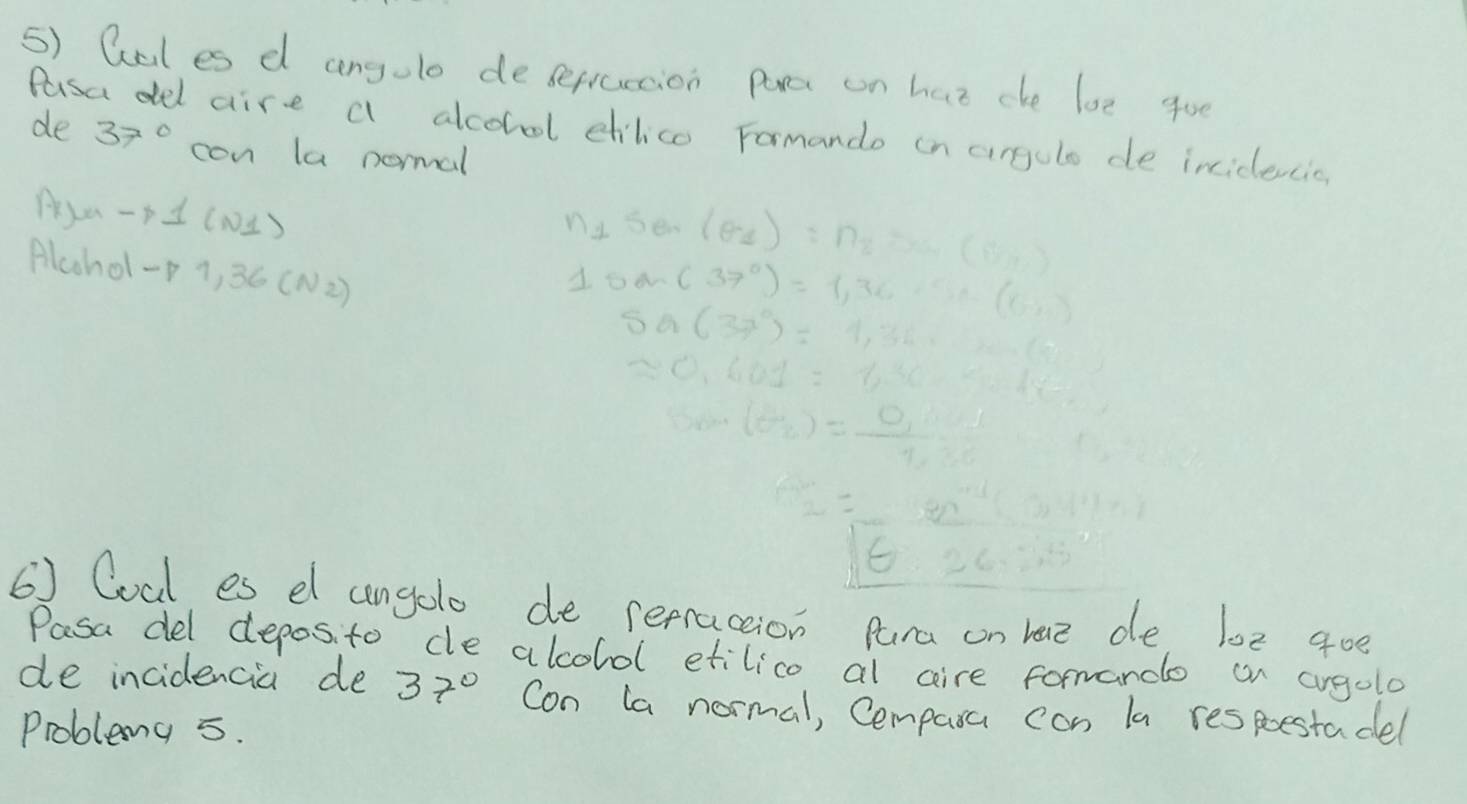 5) Cual es el angulo de refraccion para un haz de luz que
Pasa del aire a alcohol etilico Formando un angulo de incidencia
de 37° con la normal
Alcohol → 1,36 (N2)
n1 sen (θ1) = n2
1 sen (37°) = 1,36
sen (37°) = 1,36
≈ 0,601 = 1,36
6) Cual es el angulo de refraccion Para un haz de luz que
Pasa del deposito de alcohol etilico al aire formando un angulo
de incidencia de 37° Con la normal, Compara con la respuesta del
Problema 5.